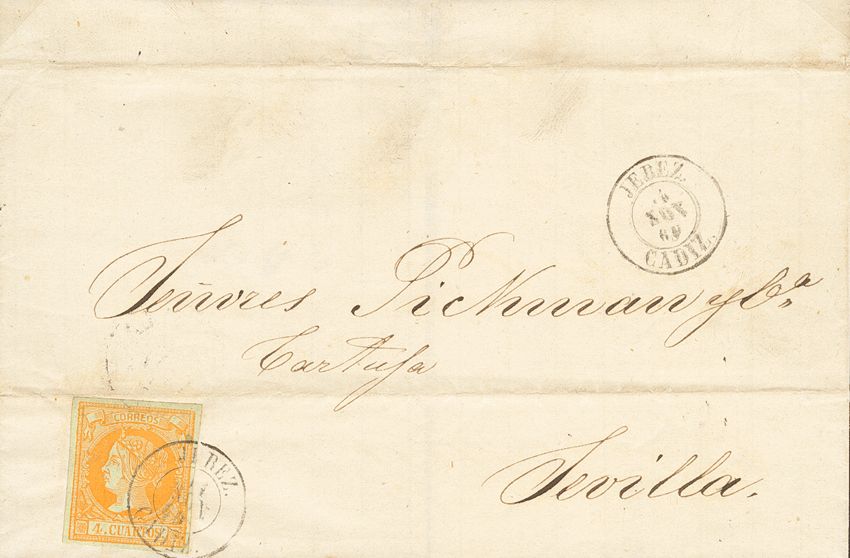 JEREZ.
NOV
CADIZ.
Señores Pickman y Cª
Cartuja
Sevilla.
CORREOS
4 CUARTOS
JEREZ.